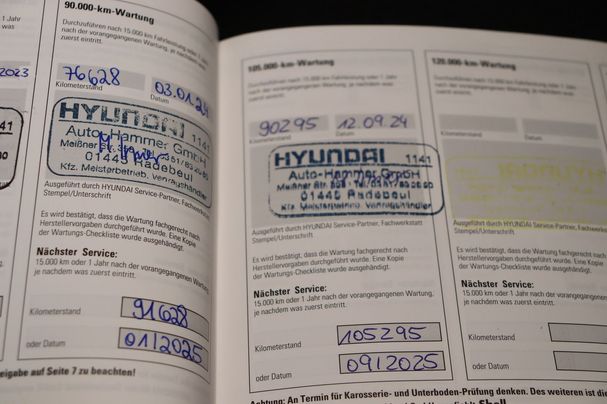 90.000-km-Wartung
Durchzuführen nach 15.000 km Fahrleistung oder 1 Jahr
nach der vorangegangenen Wartung, je nachdem was
zuerst eintritt.
2023
76628
03.01.24
Kilometerstand
Datum
HYUNDAI 1141
Auto-Hammer GmbH
Meißner Str.
01445 Radebeul
Kfz. Meisterbetrieb, Vertragshändler
Ausgeführt durch HYUNDAI Service-Partner, Fachwerkstatt
Stempel/Unterschrift
Es wird bestätigt, dass die Wartung fachgerecht nach
Herstellervorgaben durchgeführt wurde. Eine Kopie
der Wartungs-Checkliste wurde ausgehändigt.
Nächster Service:
15.000 km oder 1 Jahr nach der vorangegangenen Wartung,
je nachdem was zuerst eintritt.
Kilometerstand
91628
oder Datum
01/2025
eigabe auf Seite 7 zu beachten!
105.000-km-Wartung
Durchzuführen nach 15.000 km Fahrleistung oder 1 Jahr
nach der vorangegangenen Wartung, je nachdem was
zuerst eintritt.
90295
12.09.24
Kilometerstand
Datum
HYUNDAI 1141
Auto-Hammer GmbH
01445 Radebeul
Kfz Meisterbetrieb, Vertragshändler
Ausgeführt durch HYUNDAI Service-Partner, Fachwerkstatt
Stempel/Unterschrift
Es wird bestätigt, dass die Wartung fachgerecht nach
Herstellervorgaben durchgeführt wurde. Eine Kopie
der Wartungs-Checkliste wurde ausgehändigt.
Nächster Service:
15.000 km oder 1 Jahr nach der vorangegangenen Wartung,
je nachdem was zuerst eintritt.
Kilometerstand
105295
oder Datum
09/2025
120.000-km-Wartung
Kilometerstand
Datum
Ausgeführt durch HYUNDAI Service-Partner, Fachwerkstatt
Stempel/Unterschrift
Es wird bestätigt, dass die Wartung fachgerecht nach
Herstellervorgaben durchgeführt wurde. Eine Kopie
der Wartungs-Checkliste wurde ausgehändigt.
Nächster Service:
15.000 km oder 1 Jahr nach der vorangegangenen
je nachdem was zuerst eintritt.
Kilometerstand
oder Datum
Achtung: An Termin für Karosserie- und Unterboden-Prüfung denken. Des weiteren ist die
Shell